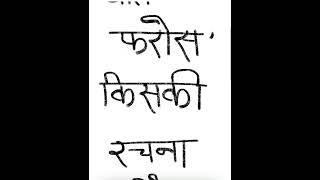 फरोस'
किसकी
रचना